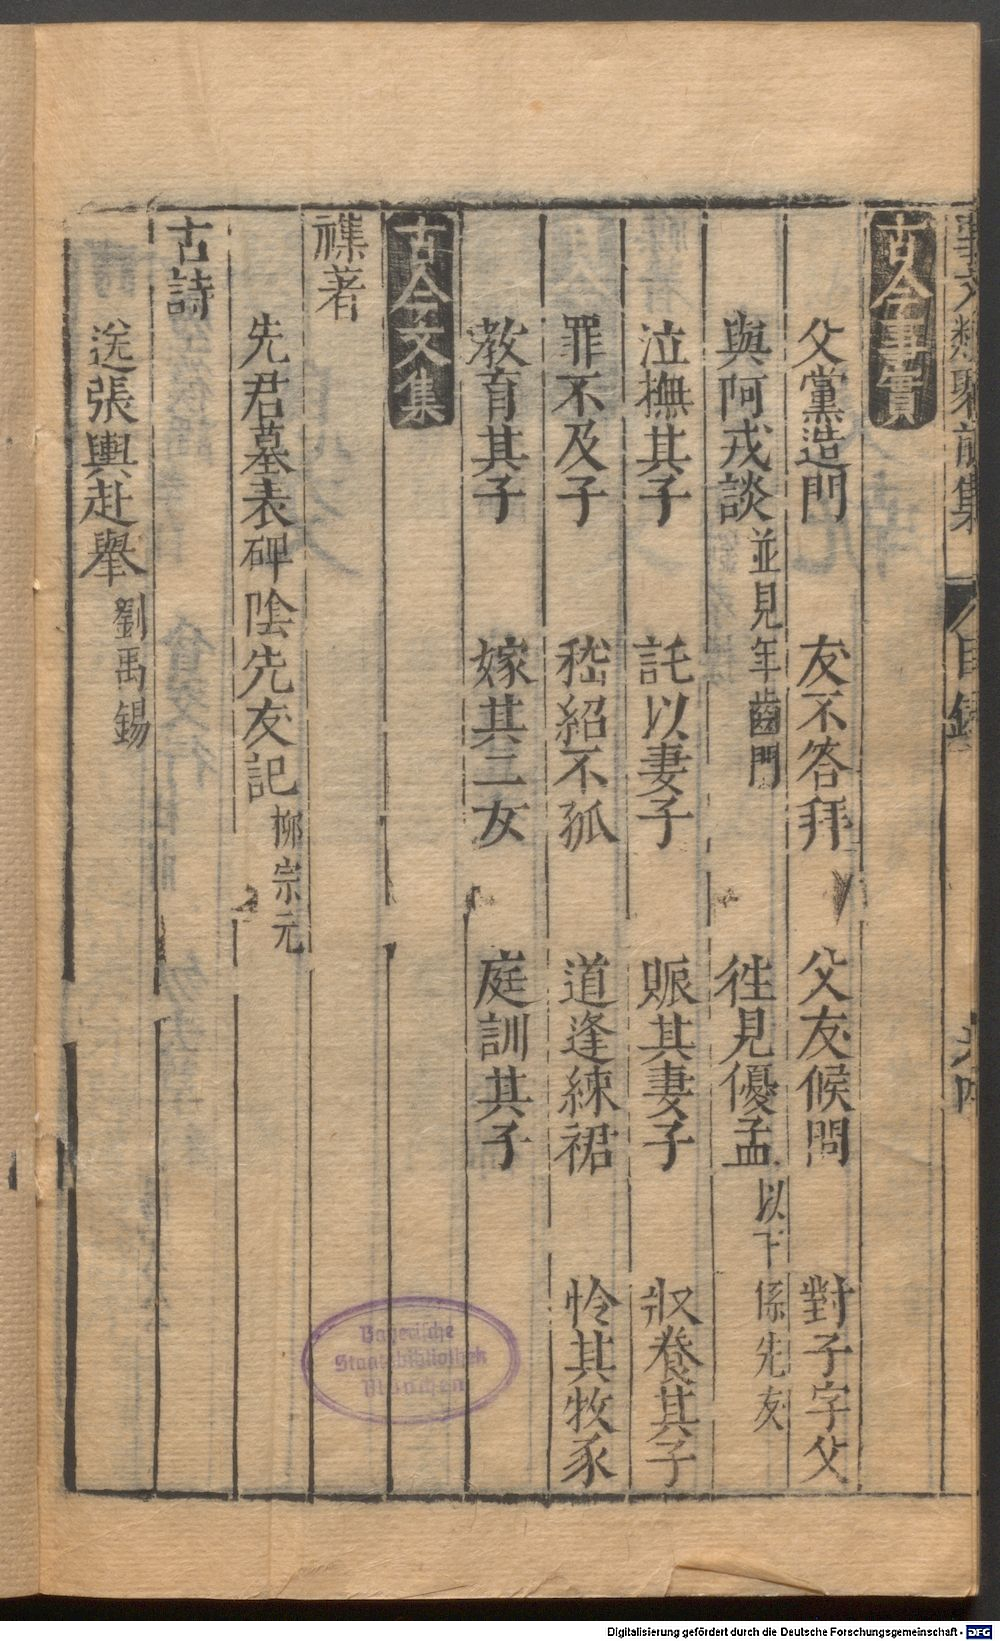 事文類聚前集 目錄
古今事實
父黨造門 友不答拜 父友候問 對子字父
與阿戎談並見年齒門 往見優孟以下係先友
泣撫其子 託以妻子 賑其妻子 収養其子
罪不及子 嵇紹不孤 道逢練裙 怜其牧豕
教育其子 嫁其二女 庭訓其子
古今文集
襍著
先君墓表碑陰先友記柳宗元
古詩
送張輿赴舉劉禹錫
Bayerische
Staatsbibliothek
München
Digitalisierung gefördert durch die Deutsche Forschungsgemeinschaft - DFG